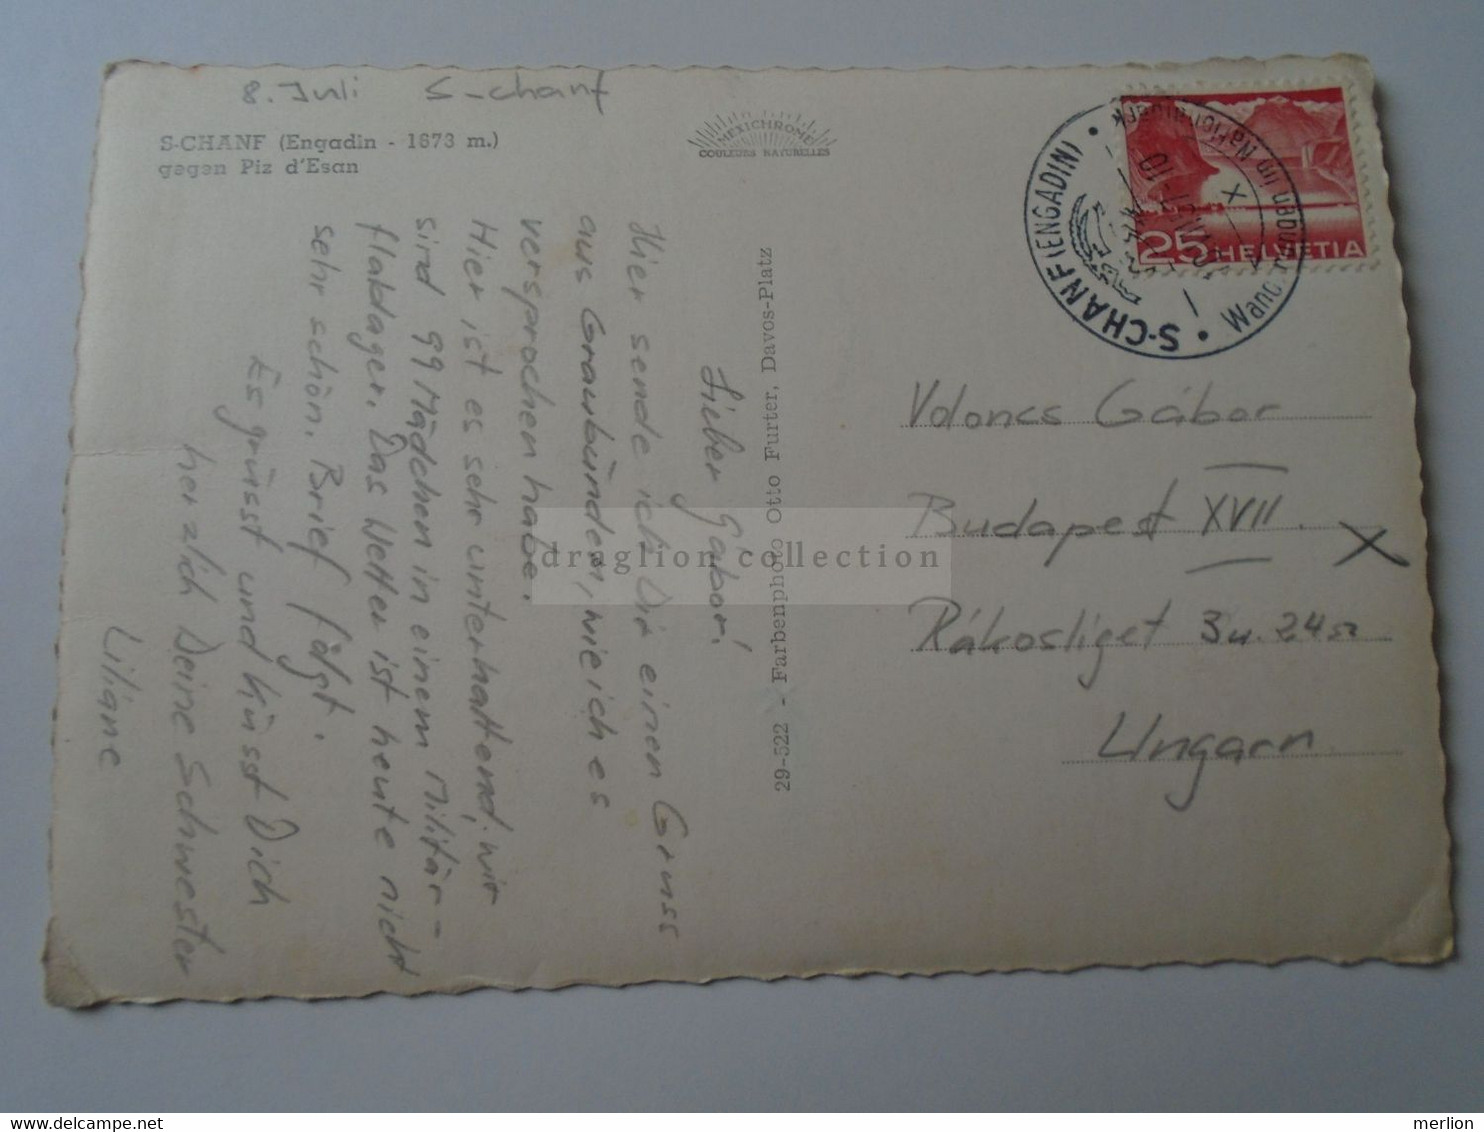 8. Juli S-chanf
S-CHANF (Engadin - 1673 m.)
gegen Piz d'Esan
MEXICHROME
COULEURS NATURELLES
Lieber Gábor!
Hier sende ich Dir einen Gruss
aus Graubünden, wie ich es
versprochen habe.
Hier ist es sehr unterhaltend, wir
sind 99 Mädchen in einem Militär-
flaklager. Das Wetter ist heute nicht
sehr schön. Brief folgt.
Es grüsst und küsst Dich
herzlich Deine Schwester
Liliane
29-522 - Farbenphoto Otto Furter, Davos-Platz
S-CHANF (ENGADIN)
25 HELVETIA
Voloncs Gábor
Budapest XVII.
X
Rákosliget
Ungarn
draglion collection
merlion